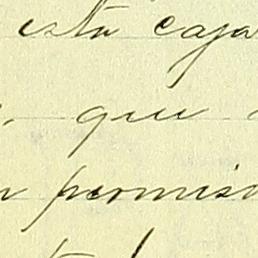 esta caja
que
permiso